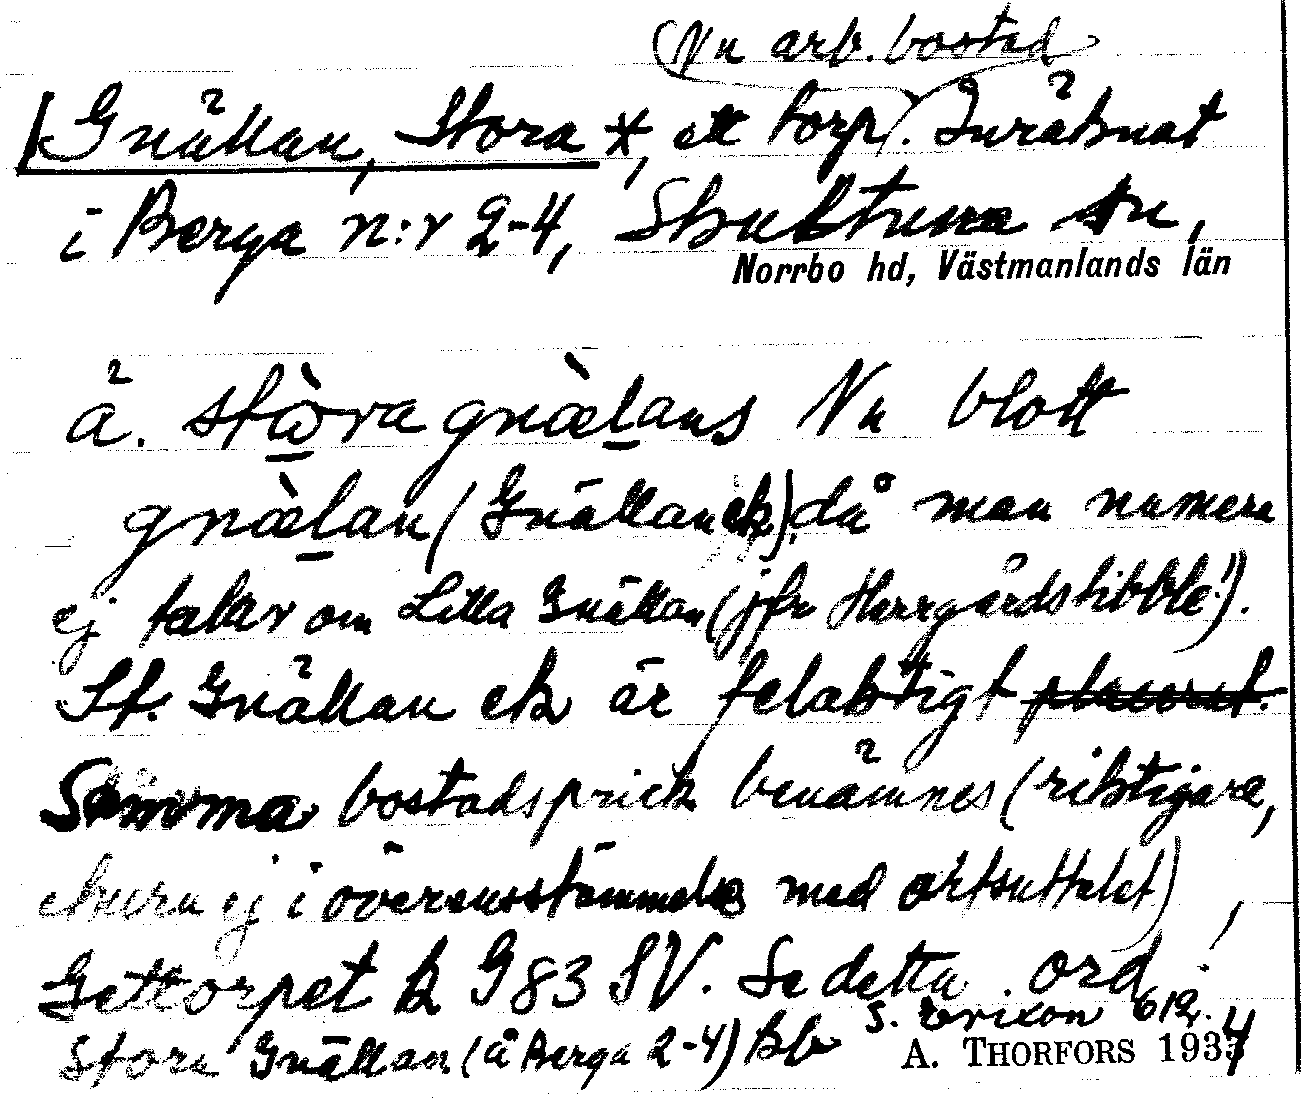 (Nu arb. bostad)
Gnällan, Stora *, ett torp. Inräknat
i Berga n:r 2-4, Skultuna sn,
Norrbo hd, Västmanlands län
å. stωra gnælans Nu blott
gnælan (Gnällan ek), då man numera
ej talar om Lilla Gnällan (jfr Herrgårdskibble!).
St. Gnällan ek är felaktigt placerat.
Samma bostadsprick benämnes (riktigare,
ehuru ej i överensstämmelse med ortsuttalet)
Gettorpet k G 83 SV. Se detta ord!
S. Erixon 612.
Stora Gnällan (å Berga 2-4) Kb
A. THORFORS 1934